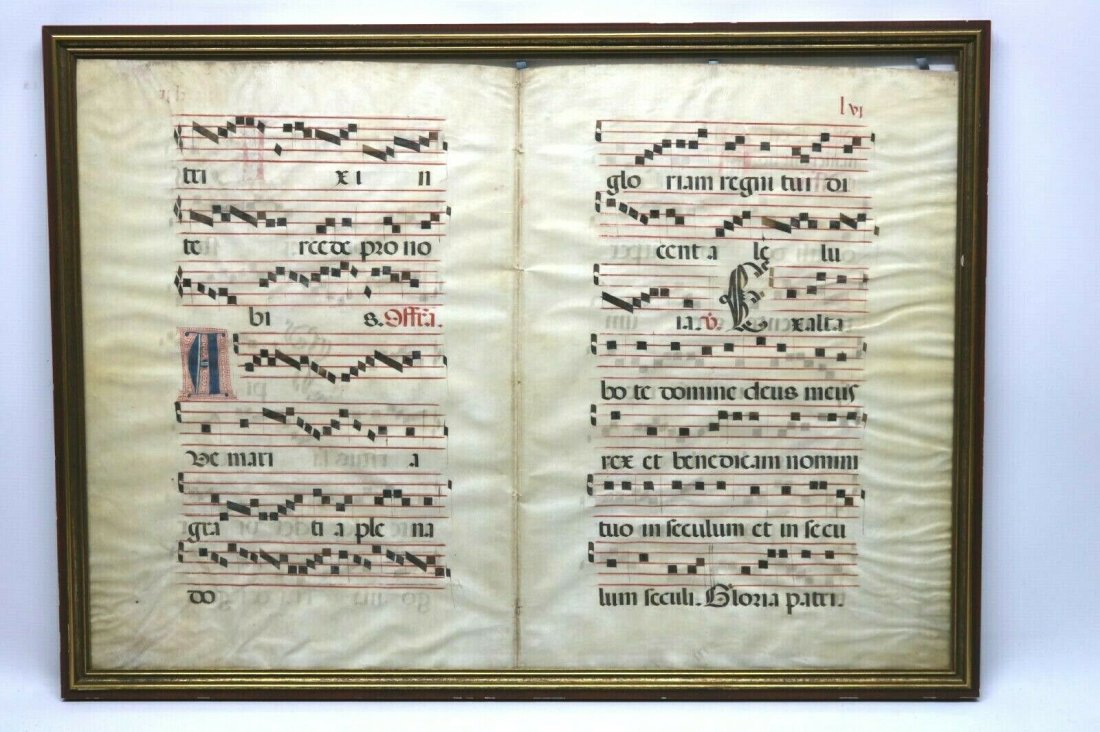 tri xi n
te rcede pro no
bi s. Offra.
A
Ve mari a
gra ti a ple na
do
lvi
glo riam regni tui di
cent a le lu
ia. v. Exalta
bo te domine deus meus
rex et benedicam nomini
tuo in seculum et in secu
lum seculi. Gloria patri.